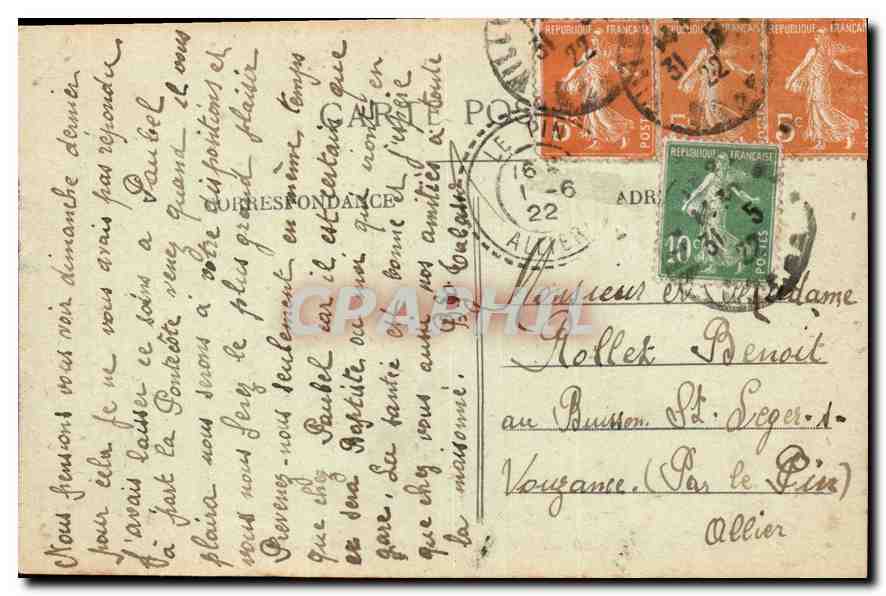 Nous pensions vous voir dimanche dernier
pour cela je ne vous avais pas répondu
J'avais laisser ce soins à Paubel
à part la Pentecôte venez quand il vous
plaira nous serons à votre dispositions et
vous nous ferez le plus grand plaisir
Prevenez-nous seulement en même temps
que chez Paubel car il est certain que
ce sera Baptiste ou moi qui irons en
gare. La santée est bonne et j'espère
que chez vous aussi nos amitiés à toute
la maisonné.
CARTE POS
CORRESPONDANCE
ADR
REPUBLIQUE FRANÇAISE
5c
POSTES
REPUBLIQUE FRANÇAISE
5c
POSTES
REPUBLIQUE FRANÇAISE
5c
REPUBLIQUE FRANÇAISE
10c
POSTES
31 5
22
31 5
22
31 5
22
LE PIN
16
1 -6
22
ALLIER
CPAPHIL.com
Monsieur et Madame
Rollet Benoit
au Buisson St. Leger-s-
Vouzance. (Par le Pin)
Allier